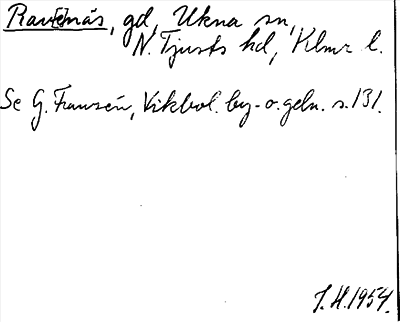 Ramsnäs, gd, Ukna sn,
N. Tjusts hd, Klmr l.
Se G. Franzén, Vikbol. by- o. gdn. s. 131.
J. H. 1954.